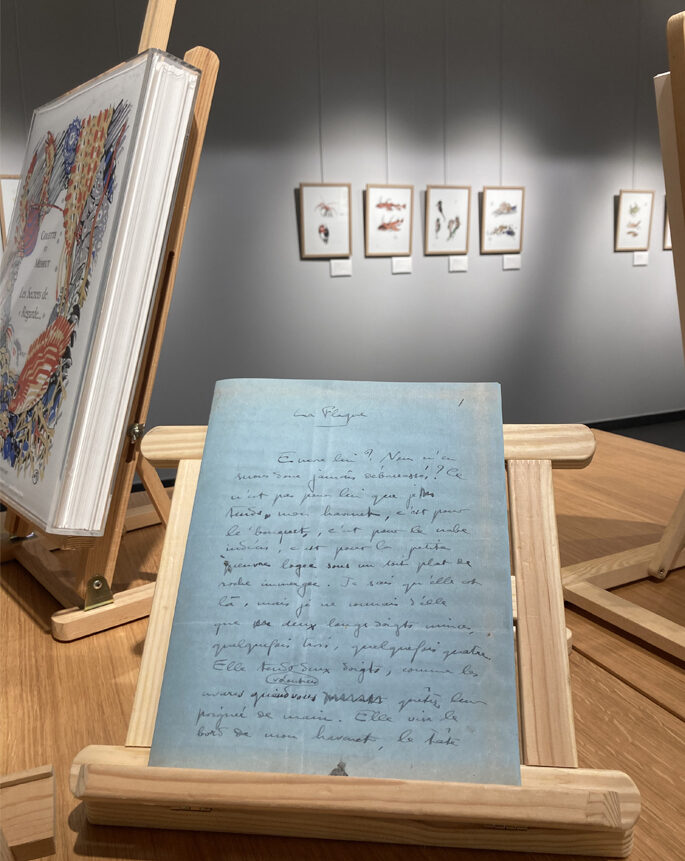 Colette
et
Méheut
Les Secrets de
« Regarde... »
La Flaque
1
Encore lui ? Nous n'en
serons donc jamais débarrassés ? Ce
n'est pas pour lui que je
tends mon havenet, c'est pour
le bouquet, c'est pour le
c'est pour la petite
pieuvre logée sous un toit plat de
roche immergée. Je sais qu'elle est
là, mais je ne connais d'elle
que deux longs doigts minces,
quelquefois trois, quelquefois quatre.
Elle tend deux doigts, comme les
avares quand vous quêtez leur
poignée de main. Elle vise le
bord de mon havenet, le tâte